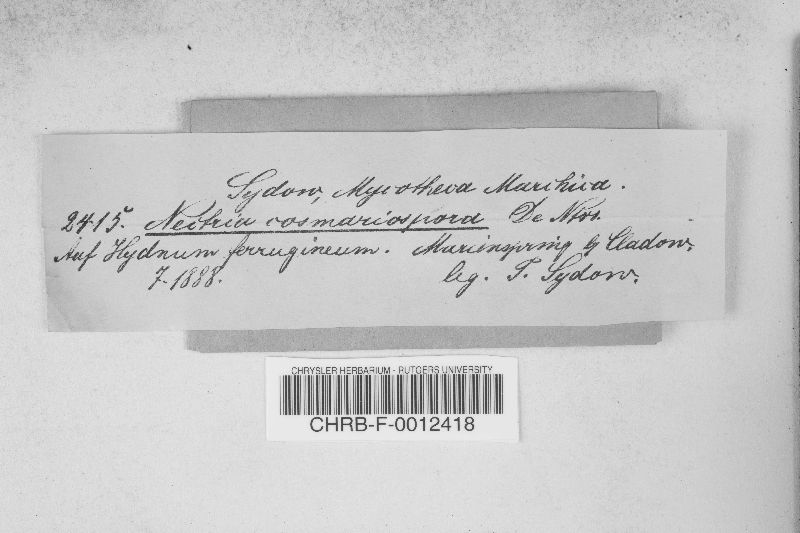 Sydow, Mycotheca Marchica.
2415. Nectria cosmariospora De Ntrs.
Auf Hydnum ferrugineum. bg Cladow,
7-1888. leg. P. Sydow.
CHRYSLER HERBARIUM - RUTGERS UNIVERSITY
CHRB-F-0012418